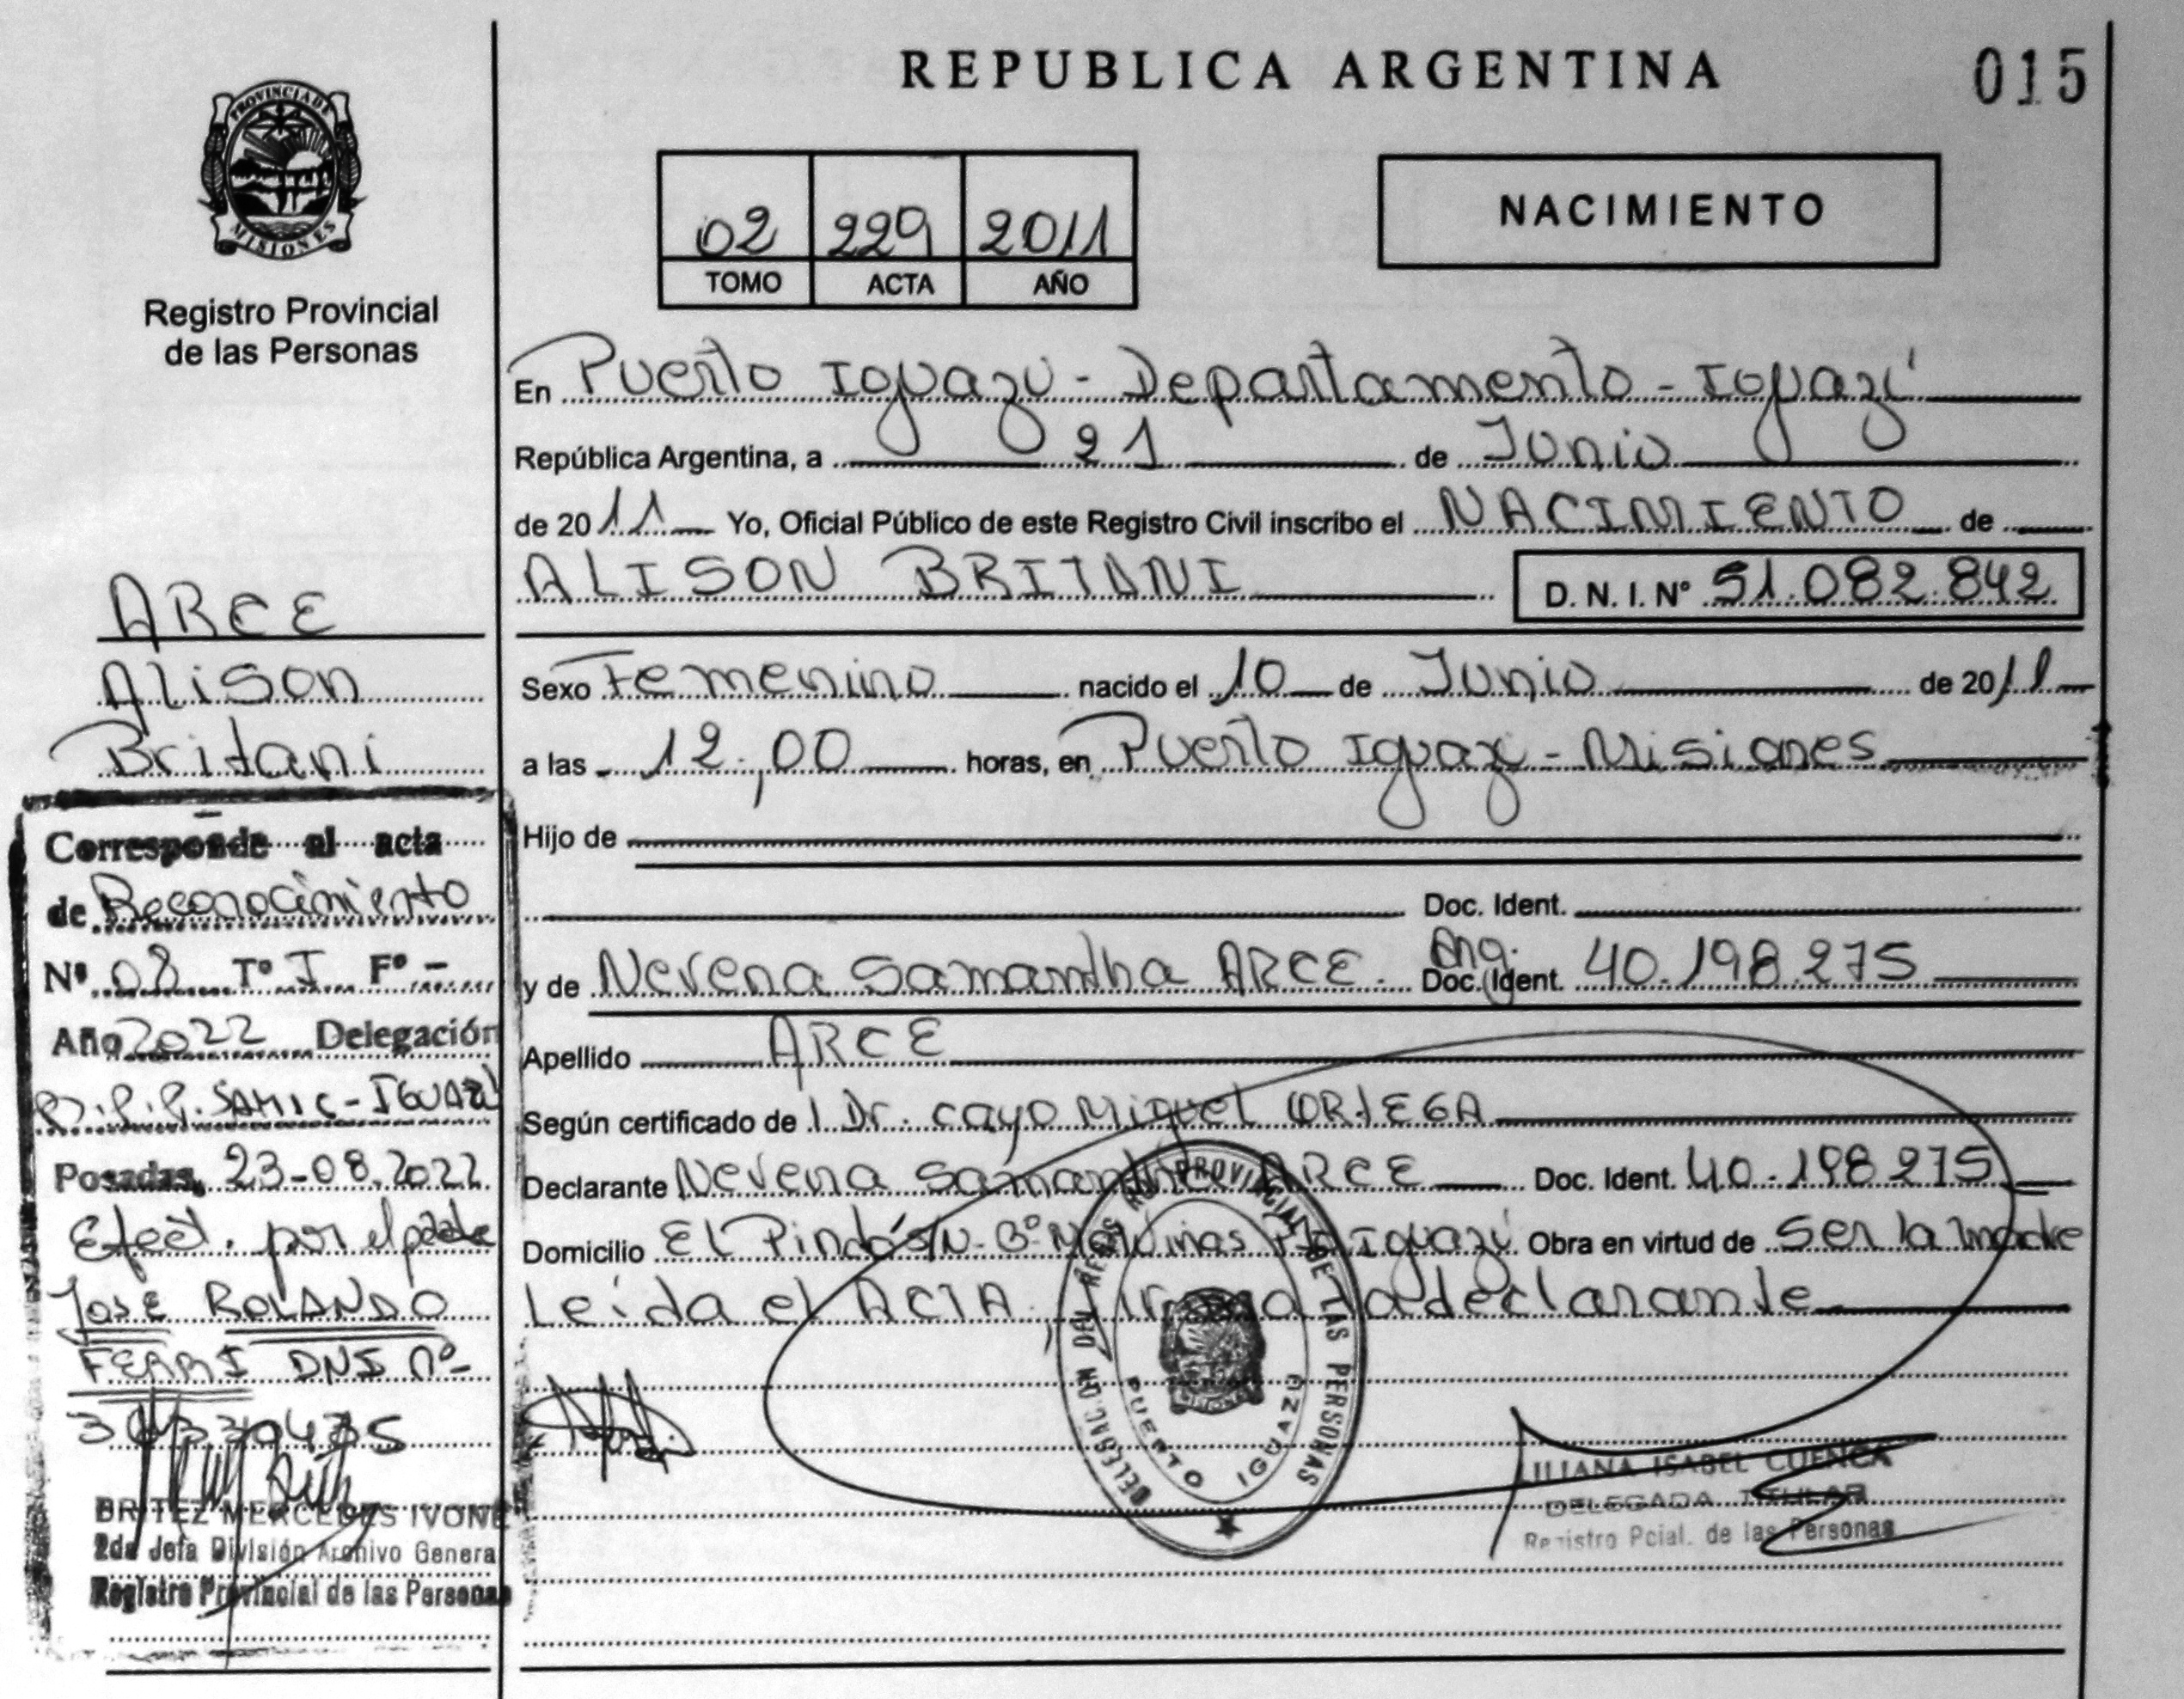 REPUBLICA ARGENTINA
015
PROVINCIA DE
MISIONES
Registro Provincial
de las Personas
02 229 2011
TOMO ACTA AÑO
NACIMIENTO
En Puerto Iguazú - Departamento - Iguazú
República Argentina, a 21 de Junio
de 2011 Yo, Oficial Público de este Registro Civil inscribo el NACIMIENTO de
ALISON BRITANI D. N. I. Nº 51.082.842
Sexo Femenino nacido el 10 de Junio de 2011
a las 12,00 horas, en Puerto Iguazú - Misiones
Hijo de
Doc. Ident.
y de Nevena Samantha ARCE. Arg. Doc. Ident. 40.198.275
Apellido ARCE
Según certificado de l Dr. Cayo Miguel ORTEGA
Declarante Nevena Samantha ARCE Doc. Ident. 40.198 275
Domicilio El Pindó S/N. Bº Malvinas Pto Iguazú Obra en virtud de ser la madre
Leída el ACTA la declarante
DELEGAC.ÓN DEL REGISTRO PROVINCIAL DE LAS PERSONAS
PUERTO IGUAZU
LILIANA ISABEL CUENCA
DELEGADA TITULAR
Registro Pcial. de las Personas
ARCE
Alison
Britani
Corresponde al acta
de Reconocimiento
Nº 08 Tº I Fº -
Año 2022 Delegación
SAMIC - IGUAZÚ
Posadas, 23-08.2022
Efect. por el padre
José ROLANDO
FERRI DNI nº-
BRITEZ MERCEDES IVONE
2da Jefa División Archivo Genera
Registro Provincial de las Personas